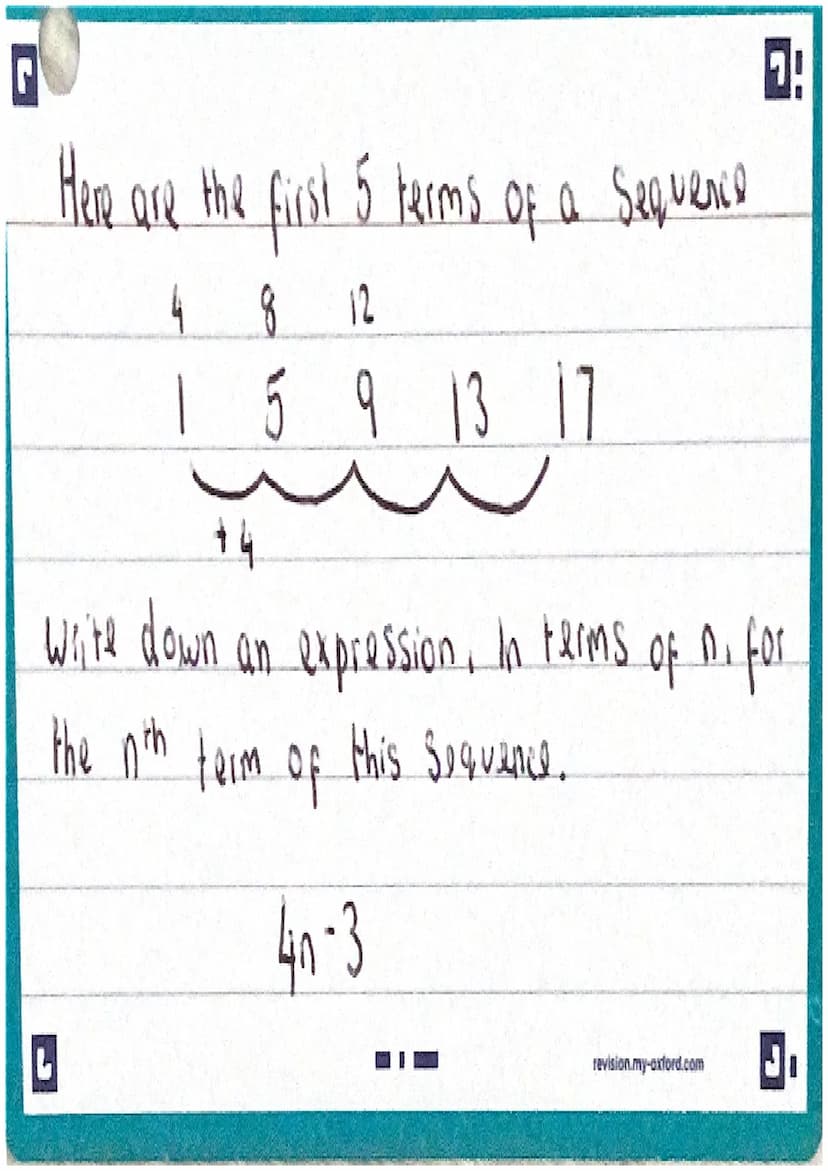 Here are the first 5 terms of a Sequence
4 8 12
1 5 9 13 17
+4
Write down an expression, In terms of n, for
the nth term of this Sequence.
4n-3
revision.my-oxford.com